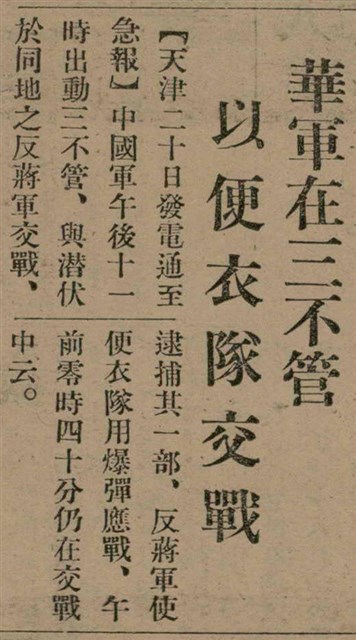 華軍在三不管
以便衣隊交戰
【天津二十日發電通至
急報】中國軍午後十一
時出動三不管、與潛伏
於同地之反蔣軍交戰、
逮捕其一部、反蔣軍使
便衣隊用爆彈應戰、午
前零時四十分仍在交戰
中云。